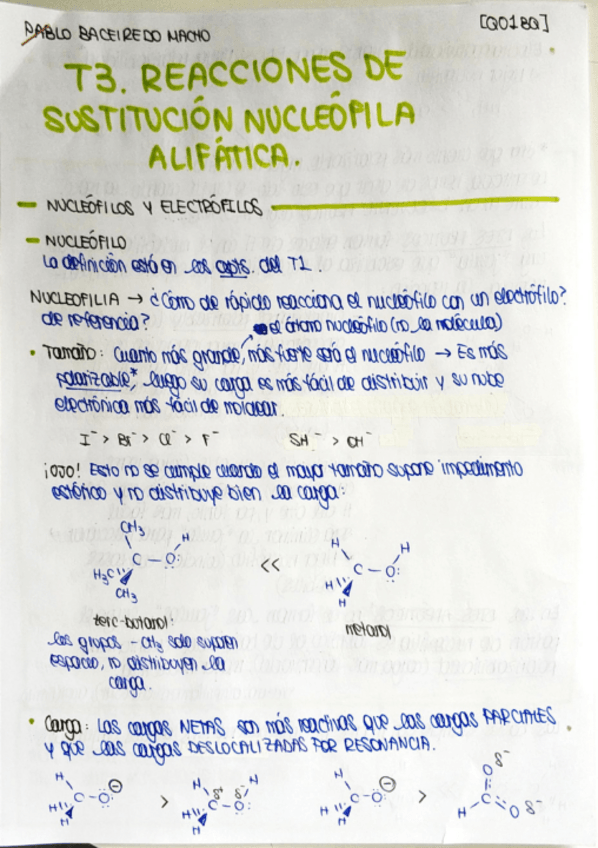 PABLO BACEIREDO MACHO
[Q01BQ]
T3. REACCIONES DE
SUSTITUCIÓN NUCLEÓFILA
ALIFÁTICA.
NUCLEÓFILOS Y ELECTRÓFILOS
NUCLEÓFILO
La definición está en los apts. del T1.
NUCLEOFILIA → ¿Cómo de rápido reacciona el nucleófilo con un electrófilo?
de referencia?
el átomo nucleófilo (no la molécula)
• Tamaño: Cuanto más grande, más fuerte será el nucleófilo → Es más
polarizable*, luego su carga es más fácil de distribuir y su nube
electrónica más fácil de moldear.
I⁻ > Br⁻ > Cl⁻ > F⁻ SH⁻ > OH⁻
¡OJO! Esto no se cumple cuando el mayor tamaño supone impedimento
estérico y no distribuye bien la carga:
CH3 H
C – O:
H3C CH3
<<
H H
C – O:
H H
terc-butanol: metanol
los grupos -CH3 solo suponen
espacio, no distribuyen la
carga.
• Carga: Las cargas NETAS son más reactivas que las cargas PARCIALES
y que las cargas DESLOCALIZADAS POR RESONANCIA.
H C – O: ⊖ H H
>
H C – O: δ⁺ δ⁻ H H H
H C – O: ⊖ H H
>
O δ⁻ C H O δ⁻